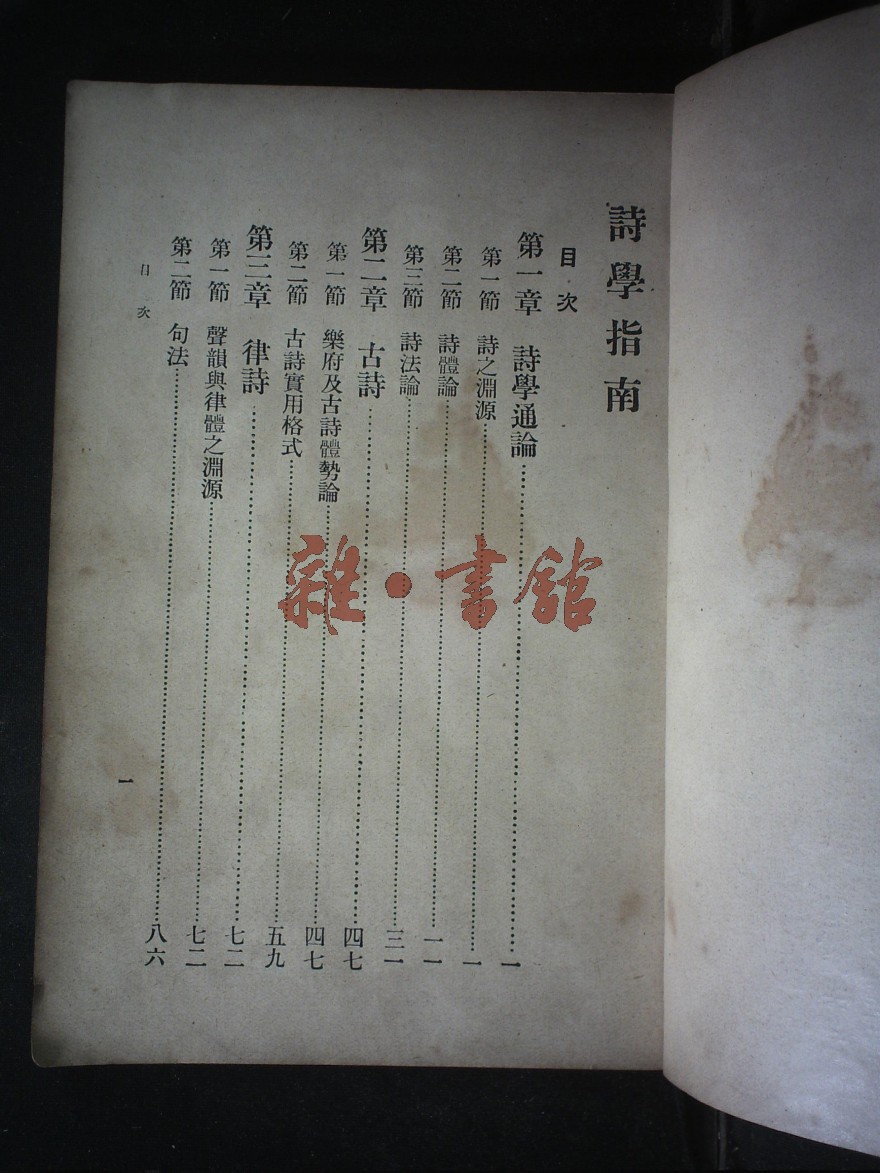 詩學指南
目次
第一章 詩學通論……一
第一節 詩之淵源……一
第二節 詩體論……一一
第三節 詩法論……三一
第二章 古詩……四七
第一節 樂府及古詩體勢論……四七
第二節 古詩實用格式……五九
第三章 律詩……七二
第一節 聲韻與律體之淵源……七二
第二節 句法……八六
目次
一
雜·書館